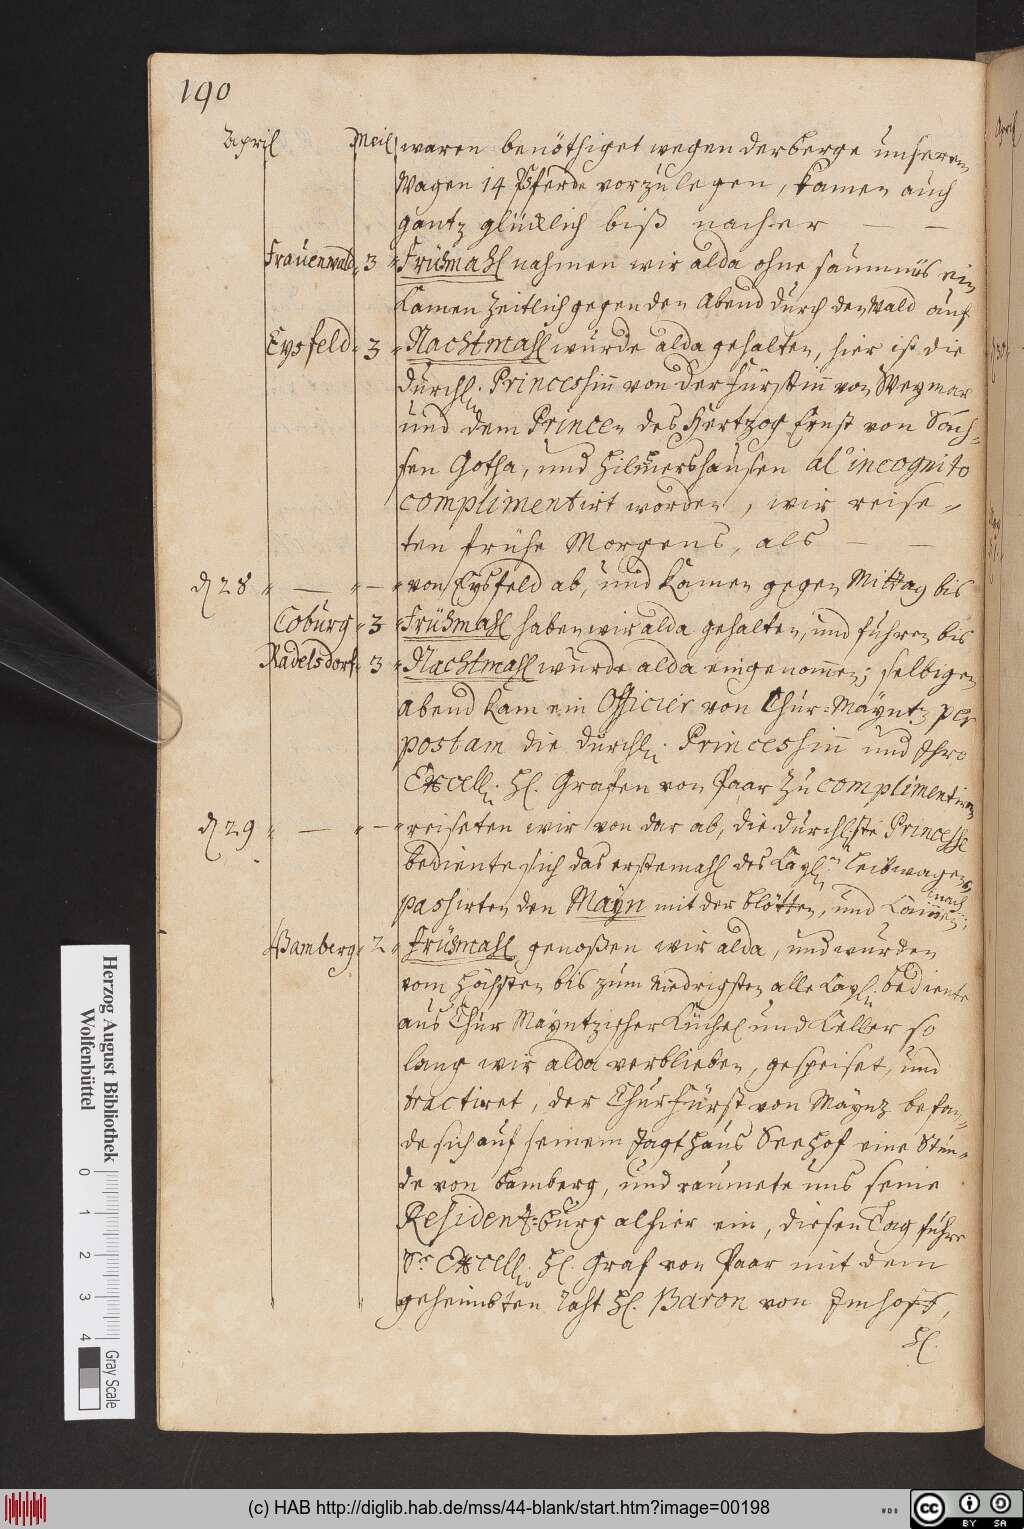 190
April Meil waren benöthiget wegen der berge unserem
Wagen 14 Pferde vorzulegen, kamen auch
gantz glücklich biß nacher — —
Frauenwald " 3 " Frühmahl nahmen wir alda ohne saumnüs ein
kamen Zeitlich gegen den Abend durch den Wald auf
Eysfeld " 3 " Nachtmahl wurde alda gehalten, hier ist die
Durchl. Princeshin von der Fürstin von Weymar
und dem Princen des Hertzog Ernst von Sach=
sen Gotha, und Hilmershausen al' incognito
complimentirt worden, wir reise=
ten frühe Morgens, als — —
d 28 " — " — " von Eysfeld ab, und kamen gegen Mittag bis
Coburg " 3 " Frühmahl haben wir alda gehalten, und fuhren bis
Radelsdorf " 3 " Nachtmahl wurde alda eingenomen; selbigen
abend kam ein Officier von Chur=Mayntz per
postam die durchl. Princeshin und Ihro
Excell. H. Grafen von Paar zu complimentiren
d 29 " — " — " reiseten wir von dar ab, die durchlste Princesse
bediente sich das erstemahl des Kayl.n Leibwagens,
pashirten den Mayn mit der blötten, und kamen nach
Bamberg " 2 " Frühmahl genoßen wir alda, und wurden
vom Höchsten bis zum Niedrigsten alle Kayl. bediente
aus Chur Mayntzischer Küchel und Keller so
lang wir alda verblieben, gespeiset, und
tractiret, der Churfürst von Maynz befan=
de sich auf seinem Jagthaus Seehof eine Stun=
de von bamberg, und raumete uns seine
Residentz=burg alhier ein, diesen Tag fuhre
Sr Excell. H. Graf von Paar mit dem
geheimbten Raht H. Baron von Imhoff,
H.
April
Herzog August Bibliothek
Wolfenbüttel
0 1 2 3 4
Gray Scale
(c) HAB http://diglib.hab.de/mss/44-blank/start.htm?image=00198
WDB
cc BY SA